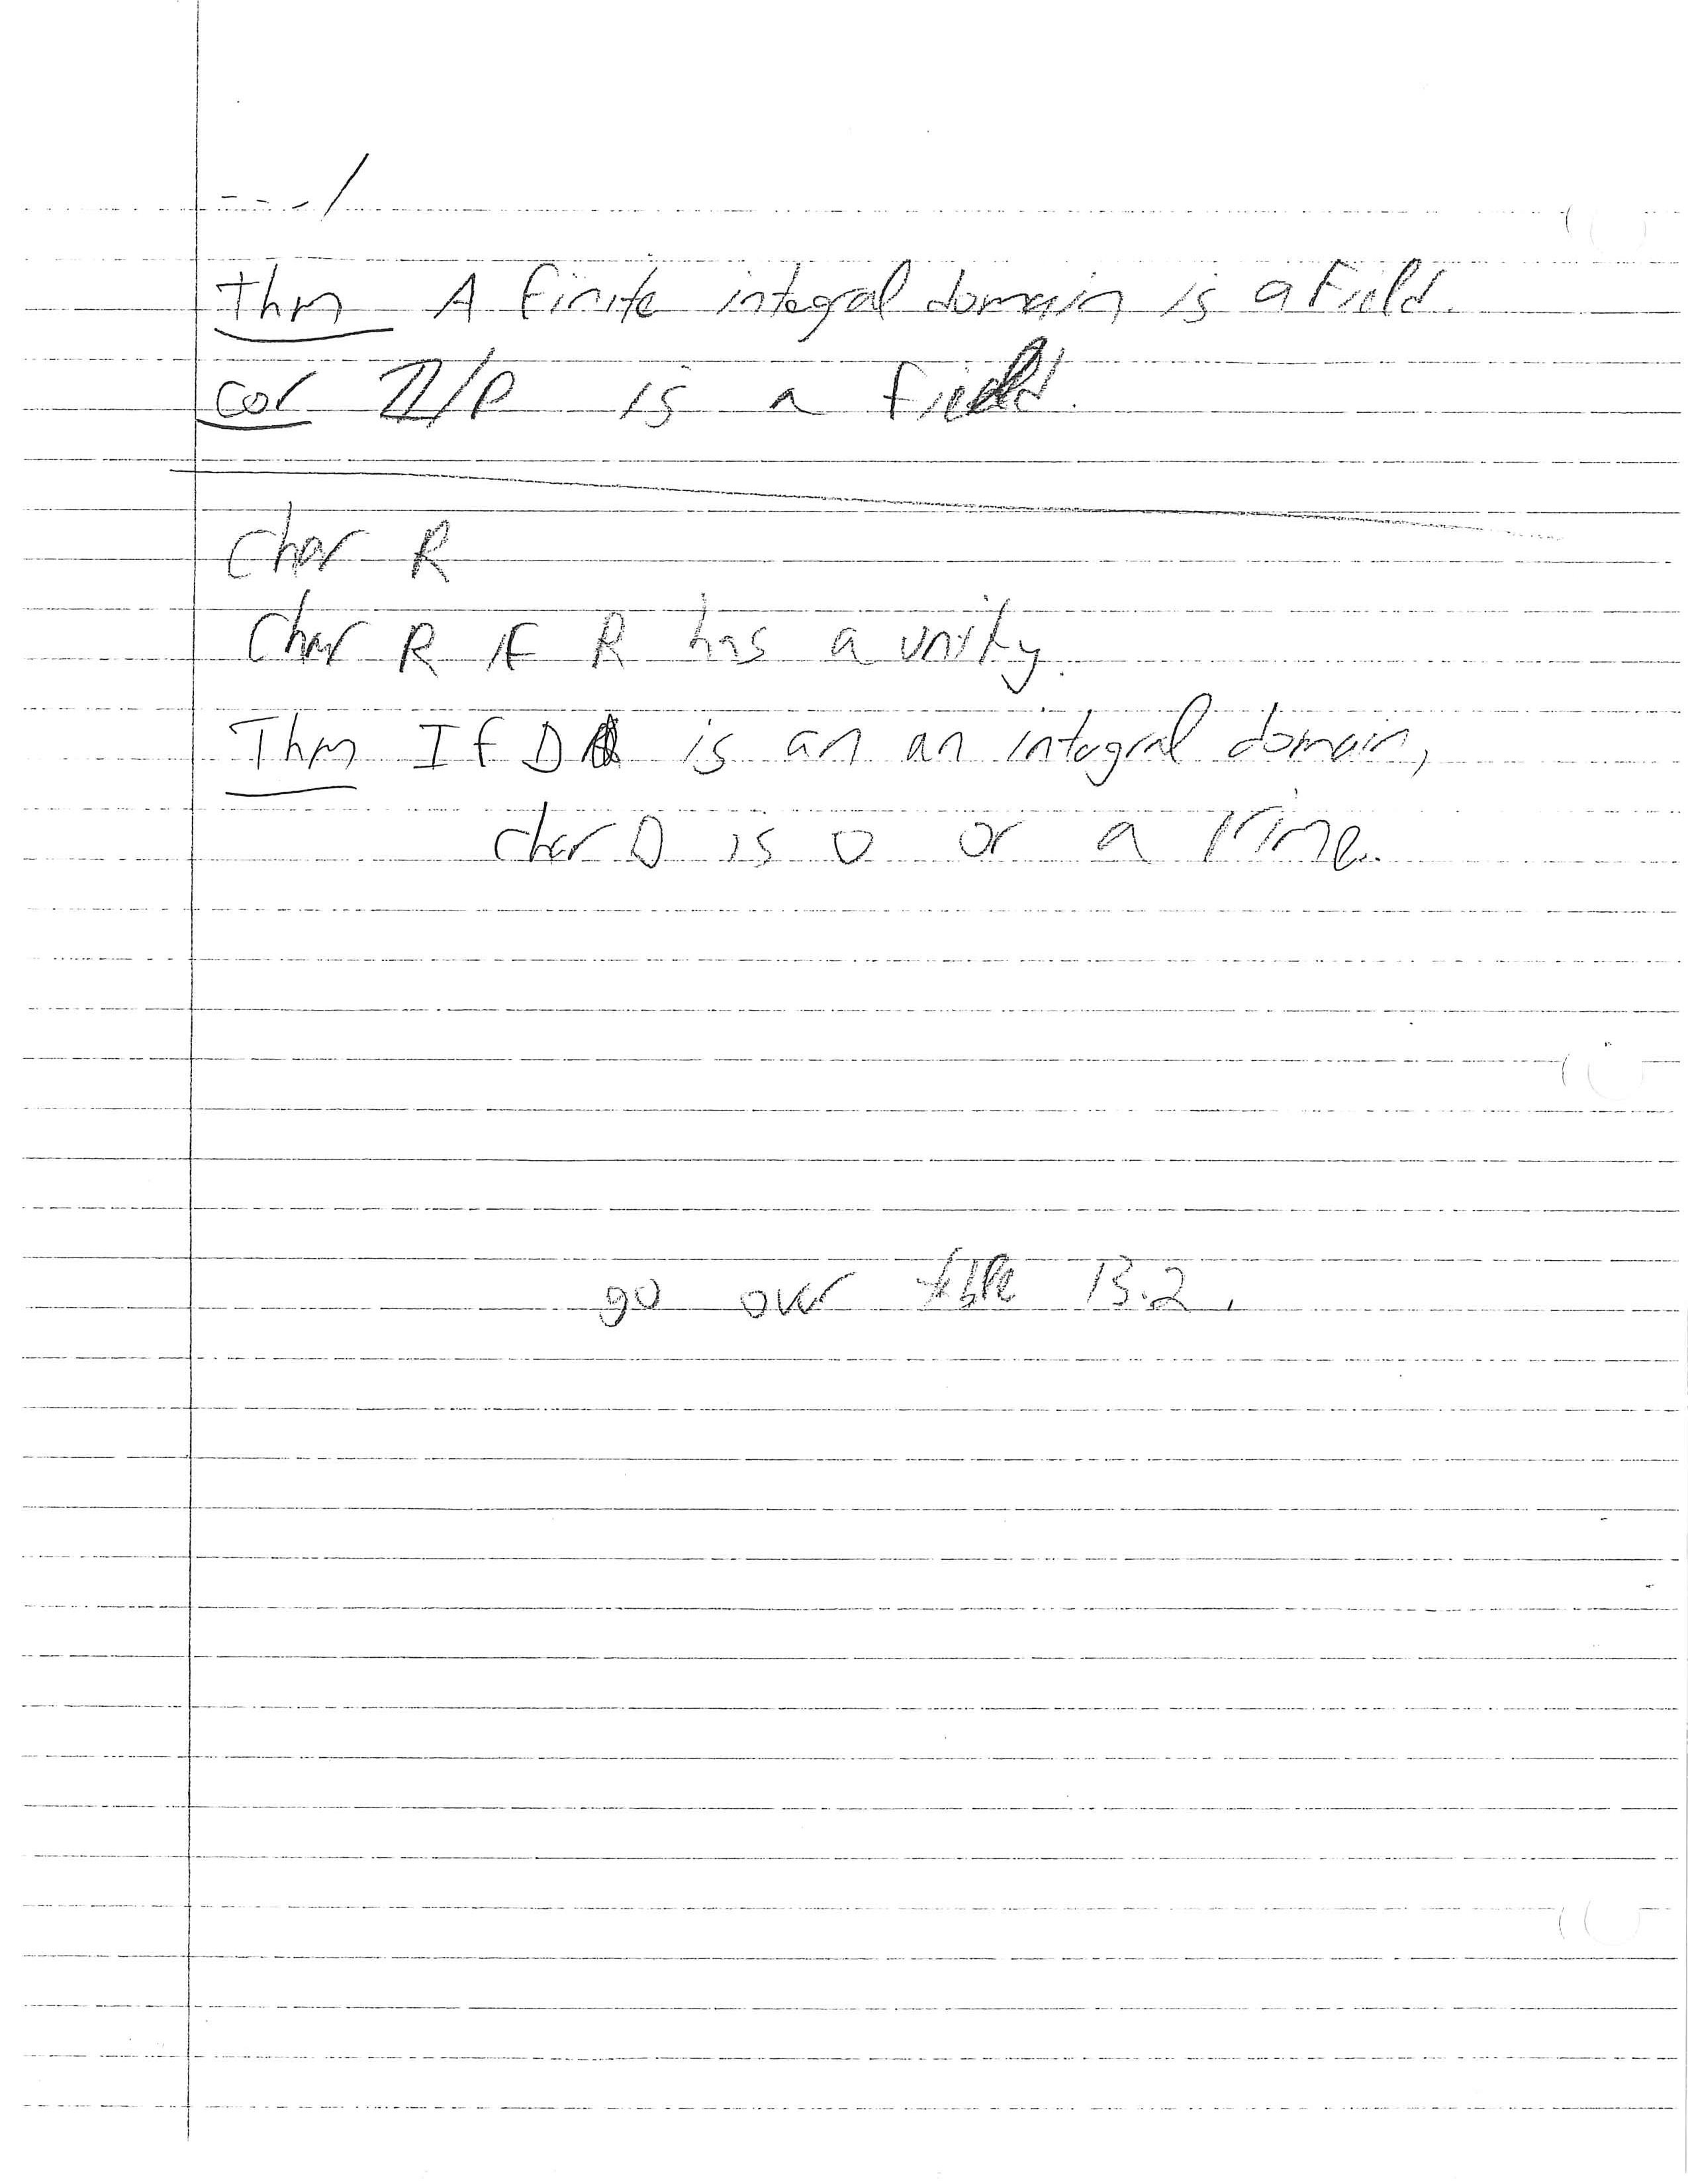 Thm A finite integral domain is a field.
cor ℤ/p is a field.
Char R
Char R if R has a unity.
Thm If D is an an integral domain,
char D is 0 or a prime.
go over table 13.2.